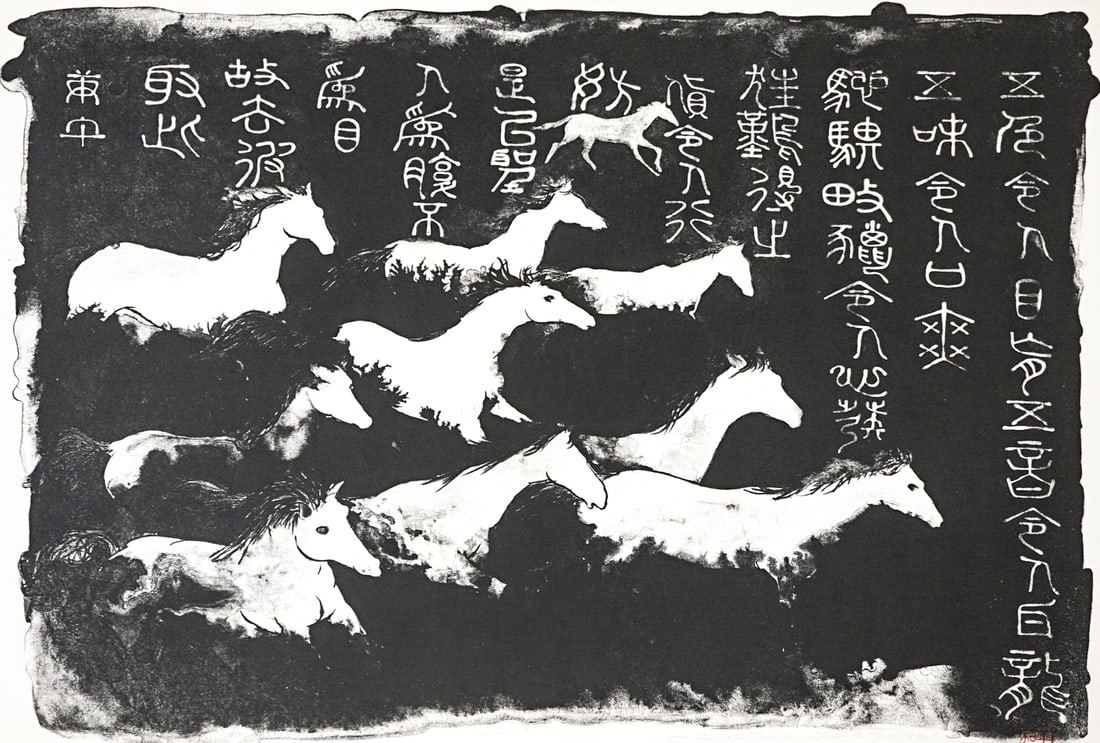 五色令人目盲五音令人耳聾
五味令人口爽
馳騁畋獵令人心發
狂難得之
貨令人行
妨
是以聖
人爲腹不
爲目
故去彼
取此